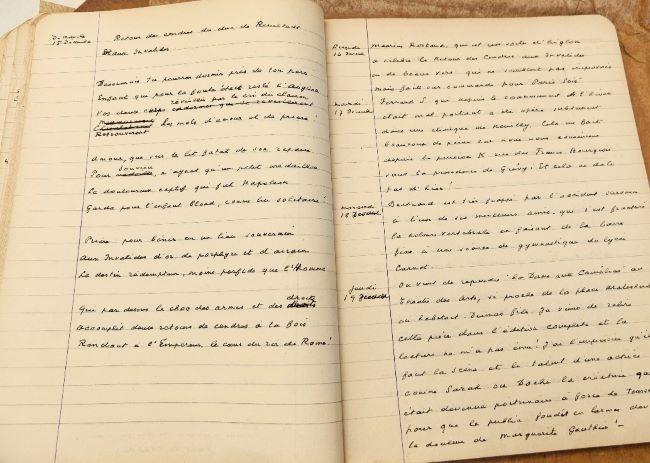 Dimanche
15 Décembre
Retour des cendres du duc de Reichstadt
aux Invalides
Désormais tu pourras dormir près de ton père
Enfant que pour la foule était resté l'Aiglon
Vos deux
réveillés par le cri du clairon
Retrouveront les mots d'amour et de prière!
Amour, que sur le lit fatal de vos repères
Pour souvenir, n'ayant qu'un petit médaillon
Le douloureux captif qui fut Napoléon
Garda pour l'enfant blond, comme lui solitaire!
Prière pour bénir en un lieu souverain
Aux Invalides d'or, de porphyre et d'airain
Le destin rédempteur, moins perfide que l'Homme
Qui par dessus le choc des armes et des droits
Accomplit deux retours de cendres à la fois
Rendant à l'Empereur, le cœur du roi de Rome!
16
Maurice Rostand, qui est une sorte d'aiglon
a célébré le Retour des Cendres aux Invalides
en de beaux vers qui ne semblent pas improvisés
mais faits sur commande pour Paris Soir
mardi
17
Fernand G. qui depuis le commencement de l'hiver
était mal portant a été opéré subitement
dans une clinique de Neuilly. Cela me fait
beaucoup de peine car nous nous connaissons
depuis la
sous la présidence de Grévy! Et cela ne date
pas d'hier!
mercredi
18
Bertrand est très frappé par l'accident survenu
à l'un de ses meilleurs amis, qui s'est fracturé
la colonne vertébrale en faisant de la barre
fixe à une séance de gymnastique du lycée
Carnot.
jeudi
19
On vient de reprendre "la Dame aux Camélias" au
Théâtre des Arts, se proche de la place Malesherbes
où habitait Dumas fils. Je viens de relire
cette pièce dans l'édition complète et la
lecture ne m'a pas ému! J'ai l'impression qu'il
faut la scène et le talent d'une actrice
comme Sarah ou Doche la créatrice qui
était devenue poitrinaire à force de tousser
pour que le public fondît en larmes devant
la douleur de Marguerite Gauthier!